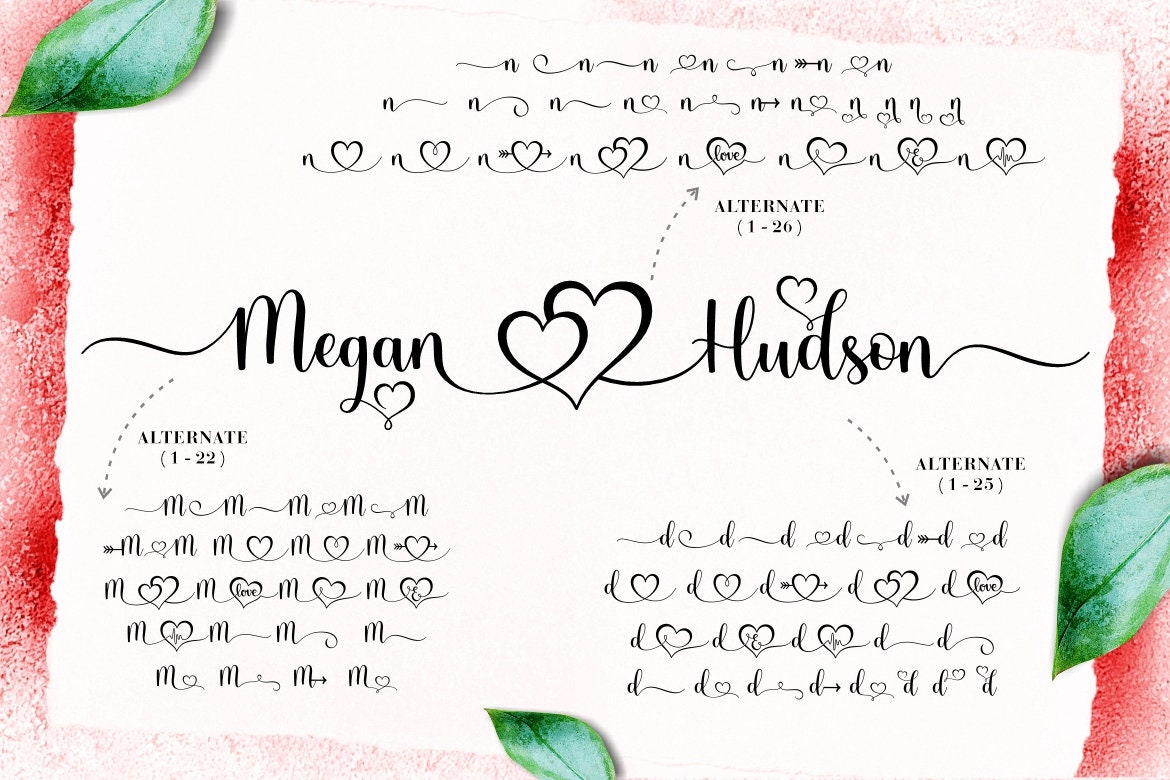 n n n n n n n
n n n n n n n n n n n
n n n n n love n n & n
ALTERNATE
(1 - 26)
Megan Hudson
ALTERNATE
(1 - 22)
ALTERNATE
(1 - 25)
M M M M M
M M M M M
M M love M M &
M M M M
M M M M
d d d d d d d
d d d d d love
d d & d d d
d d d d d d d d